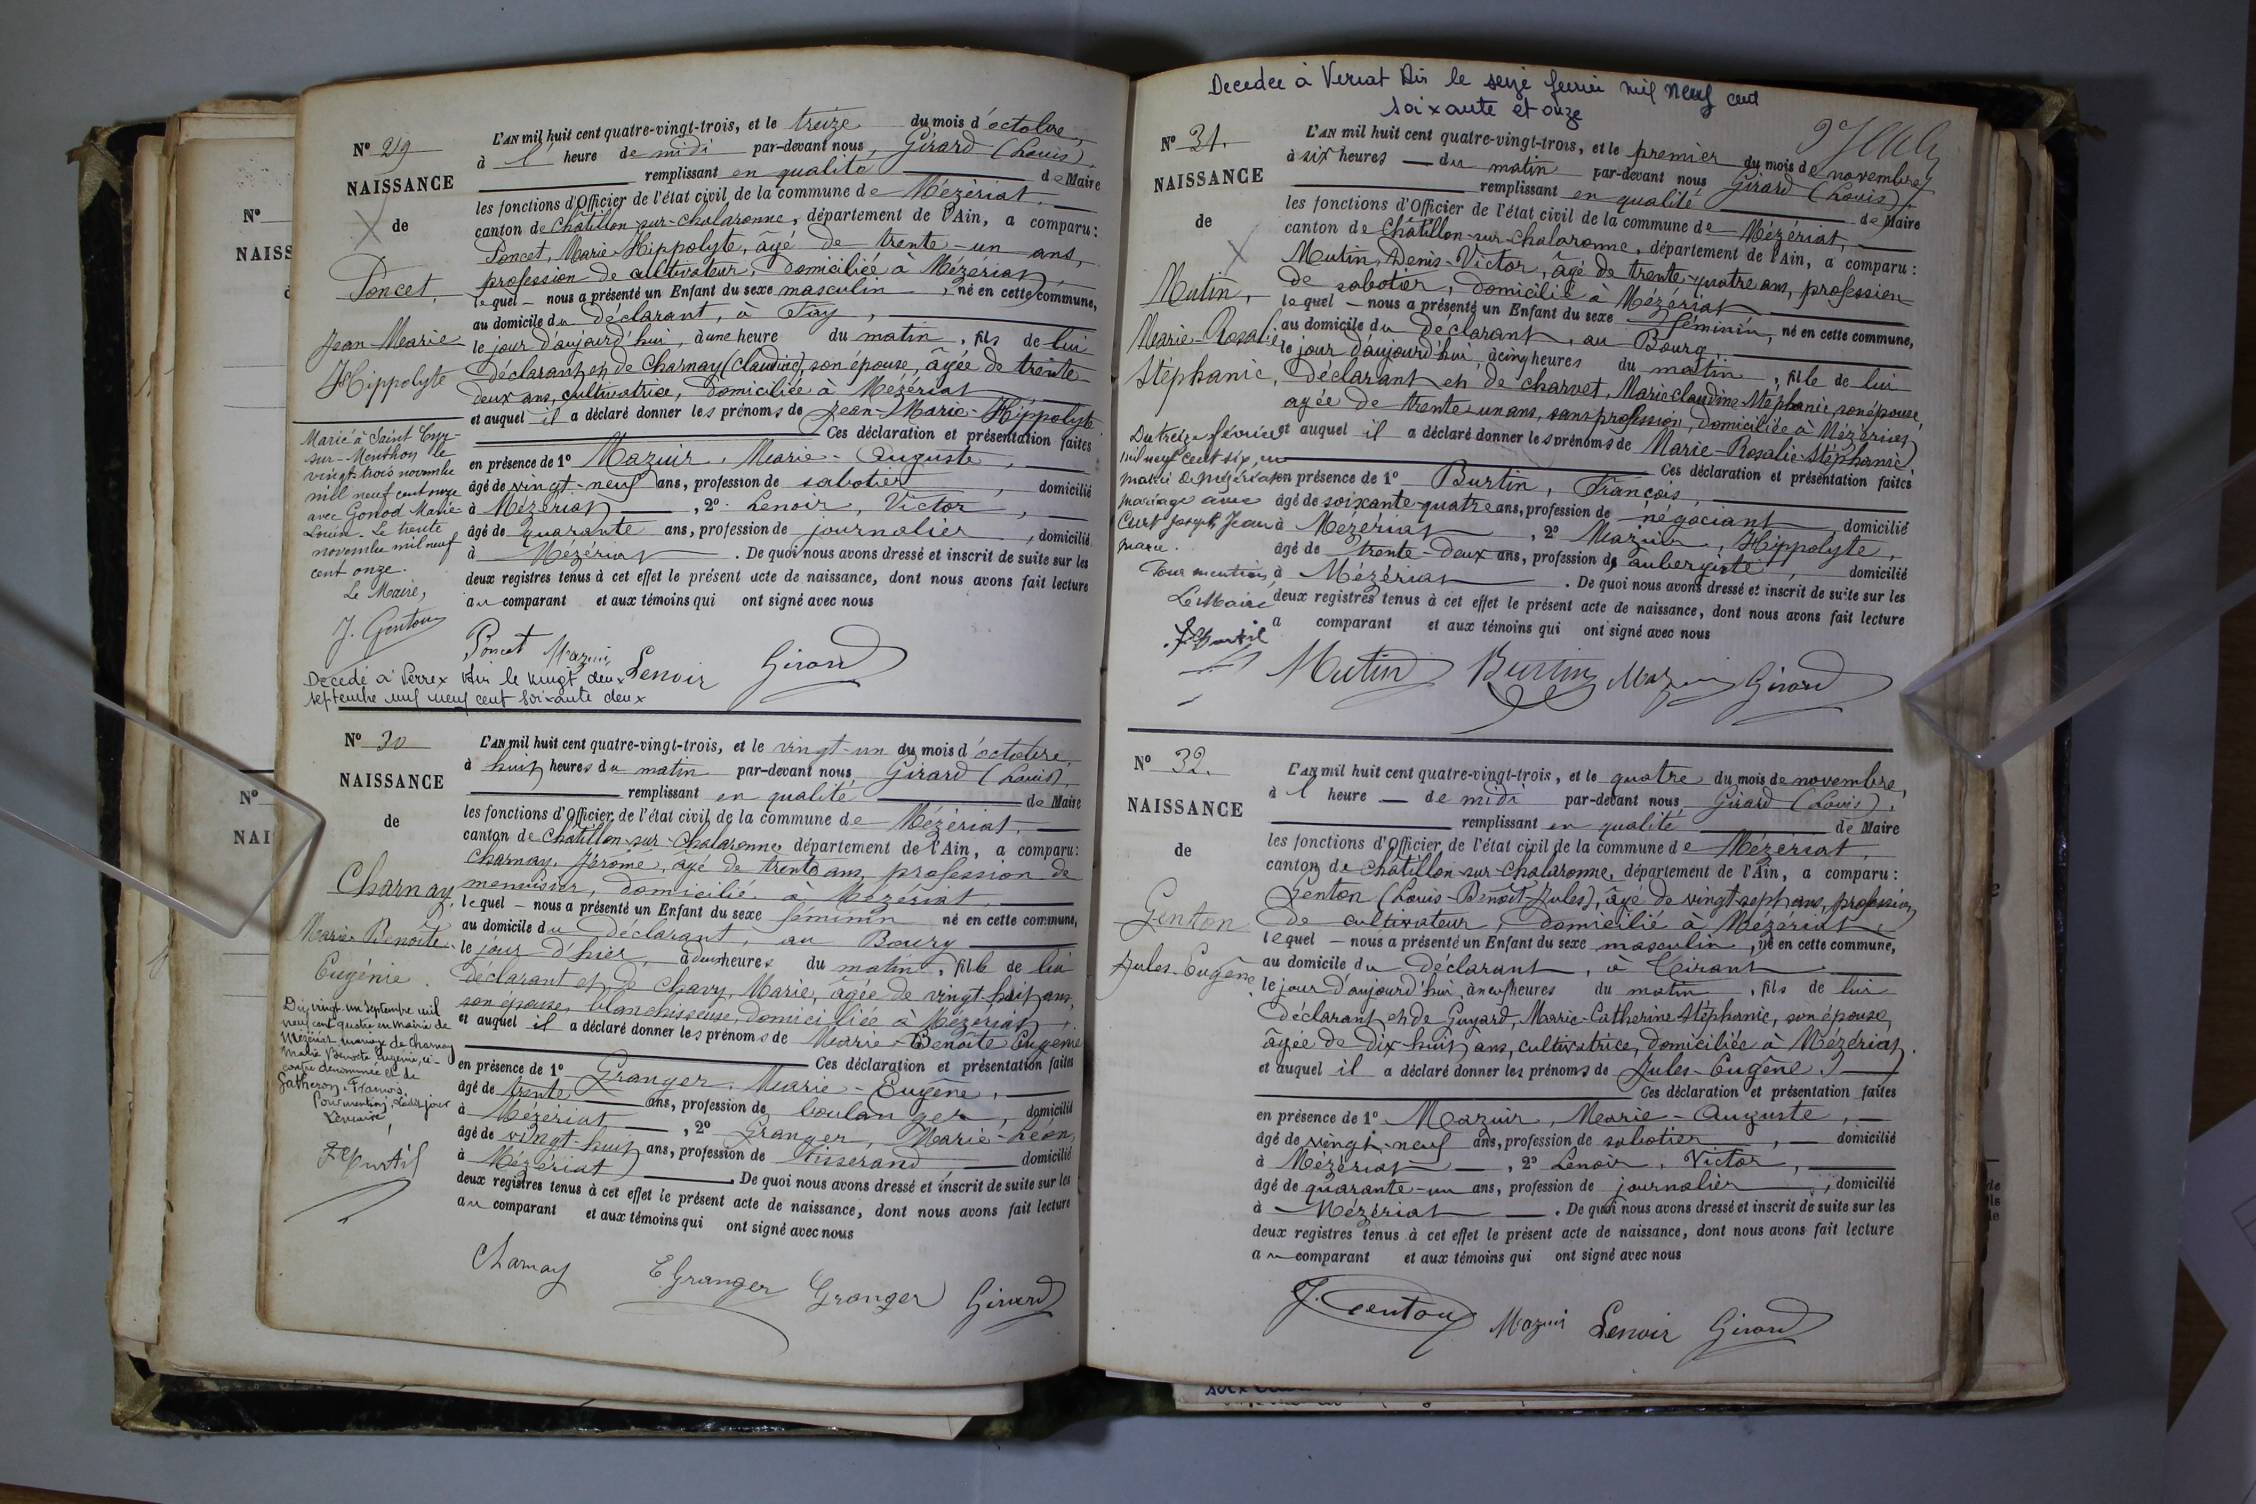 N° 29
NAISSANCE
de
Poncet,
Jean-Marie
Hippolyte
Marié à Saint Cyr-
sur-Menthon le
vingt-trois novembre
mil neuf cent onze
avec Gonod Marie
Louise. Le trente
novembre mil neuf
cent onze.
Le Maire,
J. Genton
L'AN mil huit cent quatre-vingt-trois, et le treize du mois d'octobre,
à 1 heure de midi par-devant nous, Girard (Louis),
remplissant en qualité de Maire
les fonctions d'Officier de l'état civil de la commune de Mézériat,
canton de Châtillon-sur-Chalaronne, département de l'Ain, a comparu:
Poncet, Marie-Hippolyte, âgé de trente-un ans,
profession de cultivateur, domicilié à Mézériat
lequel nous a présenté un Enfant du sexe masculin, né en cette commune,
au domicile du déclarant, à Fay,
le jour d'aujourd'hui, à une heure du matin, fils de lui
déclarant et de Charnay (Claudine), son épouse, âgée de trente-
deux ans, cultivatrice, domiciliée à Mézériat
et auquel il a déclaré donner les prénoms de Jean-Marie-Hippolyte
Ces déclaration et présentation faites
en présence de 1° Mazuir, Marie-Auguste,
âgé de vingt-neuf ans, profession de sabotier, domicilié
à Mézériat, 2° Lenoir, Victor,
âgé de quarante ans, profession de journalier, domicilié
à Mézériat. De quoi nous avons dressé et inscrit de suite sur les
deux registres tenus à cet effet le présent acte de naissance, dont nous avons fait lecture
au comparant et aux témoins qui ont signé avec nous
Poncet Mazuir Lenoir Girard
Décédé à Perrex Ain le vingt deux
septembre mil neuf cent soixante deux
N° 30
NAISSANCE
de
Charnay,
Marie-Benoîte-
Eugénie.
Du vingt-un septembre mil
neuf cent quatre en mairie de
Mézériat, mariage de Charnay
Marie Benoite Eugénie, ci-
contre dénommée et de
Gatheron, François
Pour mention, ledit jour
Le maire,
L'AN mil huit cent quatre-vingt-trois, et le vingt-un du mois d'octobre,
à huit heures du matin par-devant nous, Girard (Louis),
remplissant en qualité de Maire
les fonctions d'Officier de l'état civil de la commune de Mézériat,
canton de Châtillon-sur-Chalaronne, département de l'Ain, a comparu:
Charnay, Jérôme, âgé de trente ans, profession de
menuisier, domicilié à Mézériat,
lequel nous a présenté un Enfant du sexe féminin né en cette commune,
au domicile du déclarant, au Bourg
le jour d'hier, à deux heures du matin, fille de lui
déclarant et de Chavy, Marie, âgée de vingt-huit ans,
son épouse, blanchisseuse, domiciliée à Mézériat,
et auquel il a déclaré donner les prénoms de Marie-Benoîte Eugénie
Ces déclaration et présentation faites
en présence de 1° Granger, Marie-Eugène,
âgé de trente ans, profession de boulanger, domicilié
à Mézériat, 2° Granger, Marie-Léon,
âgé de vingt-huit ans, profession de tisserand domicilié
à Mézériat. De quoi nous avons dressé et inscrit de suite sur les
deux registres tenus à cet effet le présent acte de naissance, dont nous avons fait lecture
au comparant et aux témoins qui ont signé avec nous
Charnay E Granger Granger Girard
Décédée à Veriat Ain le seize fevrier mil neuf cent
soixante et onze
N° 31.
NAISSANCE
de
Mutin,
Marie-Rosalie
Stéphanie,
Du treize février
mil neuf cent six, en
mairie de Mézériat
mariage avec
Curt Joseph Jean
Marie.
Pour mention,
Le Maire
L'AN mil huit cent quatre-vingt-trois, et le premier du mois de novembre,
à six heures du matin par-devant nous Girard (Louis),
remplissant en qualité de Maire
les fonctions d'Officier de l'état civil de la commune de Mézériat,
canton de Châtillon-sur-Chalaronne, département de l'Ain, a comparu:
Mutin, Denis-Victor, âgé de trente-quatre ans, profession
de sabotier, domicilié à Mézériat
lequel nous a présenté un Enfant du sexe féminin, né en cette commune,
au domicile du déclarant, au Bourg,
le jour d'aujourd'hui, à cinq heures du matin, fille de lui
déclarant et de Charvet, Marie Claudine-Stéphanie, son épouse,
agée de trente-un ans, sans profession, domiciliée à Mézériat
et auquel il a déclaré donner les prénoms de Marie-Rosalie-Stéphanie
Ces déclaration et présentation faites
en présence de 1° Burtin, François,
âgé de soixante-quatre ans, profession de négociant, domicilié
à Mézériat, 2° Mazuir, Hippolyte,
âgé de trente-deux ans, profession de aubergiste domicilié
à Mézériat. De quoi nous avons dressé et inscrit de suite sur les
deux registres tenus à cet effet le présent acte de naissance, dont nous avons fait lecture
a comparant et aux témoins qui ont signé avec nous
Mutin Burtin Mazuir Girard
N° 32.
NAISSANCE
de
Genton
Jules-Eugène.
L'AN mil huit cent quatre-vingt-trois, et le quatre du mois de novembre,
à 1 heure de midi par-devant nous, Girard (Louis),
remplissant en qualité de Maire
les fonctions d'Officier de l'état civil de la commune de Mézériat,
canton de Châtillon-sur-Chalaronne, département de l'Ain, a comparu:
Genton (Louis-Benoît-Jules), âgé de vingt-sept ans, profession
de cultivateur, domicilié à Mézériat,
lequel nous a présenté un Enfant du sexe masculin, né en cette commune,
au domicile du déclarant, à Tirant
le jour d'aujourd'hui, à neuf heures du matin, fils de lui
déclarant et de Guyard, Marie-Catherine Stéphanie, son épouse,
âgée de dix-huit ans, cultivatrice, domiciliée à Mézériat.
et auquel il a déclaré donner les prénoms de Jules-Eugène.
Ces déclaration et présentation faites
en présence de 1° Mazuir, Marie-Auguste,
âgé de vingt-neuf ans, profession de sabotier, domicilié
à Mézériat, 2° Lenoir, Victor,
âgé de quarante-un ans, profession de journalier, domicilié
à Mézériat. De quoi nous avons dressé et inscrit de suite sur les
deux registres tenus à cet effet le présent acte de naissance, dont nous avons fait lecture
au comparant et aux témoins qui ont signé avec nous
J. Genton Mazuir Lenoir Girard
N°
NAISS
N°
NAI